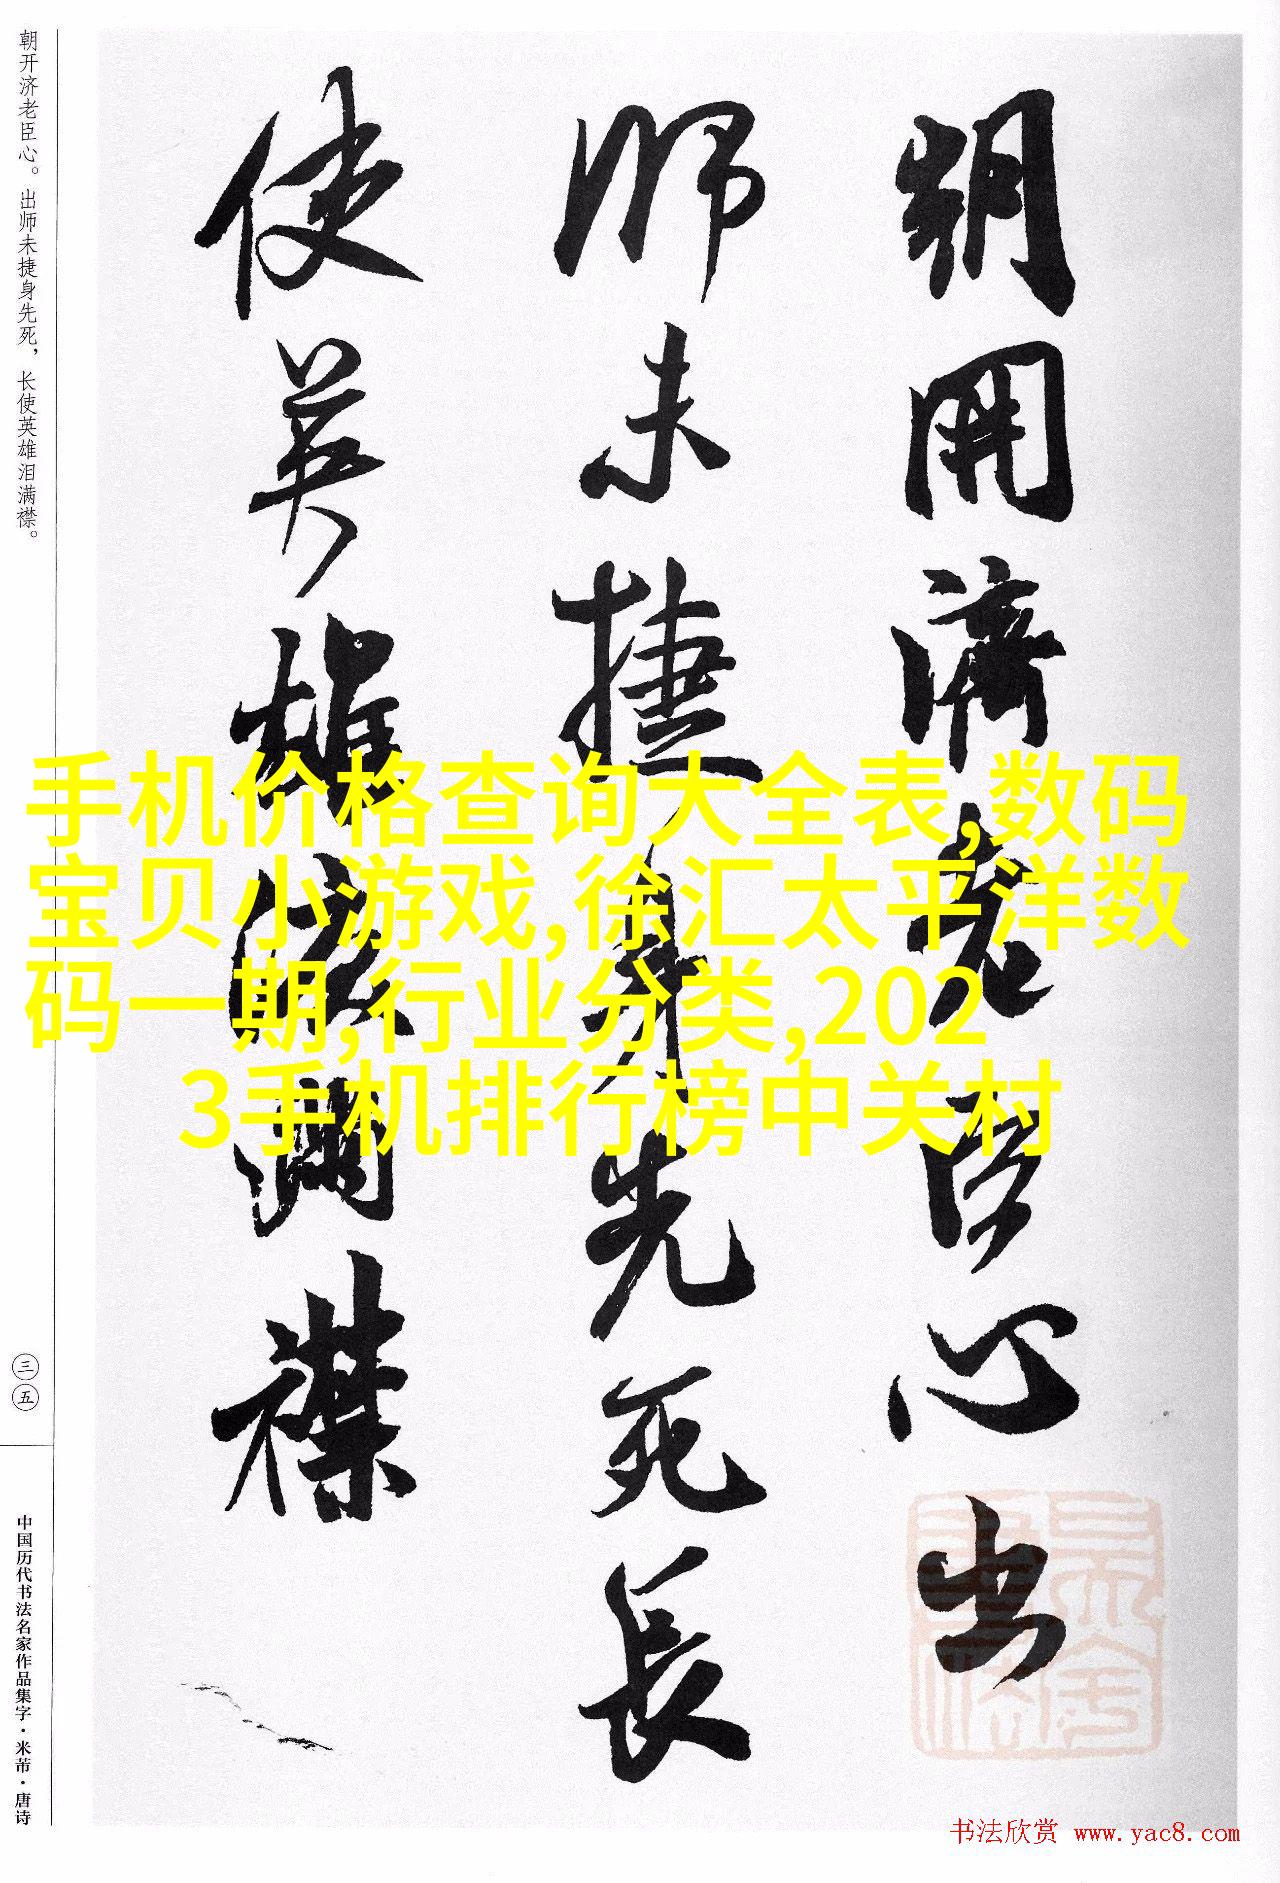 朝开济老臣心。出师未捷身先死，长使英雄泪满襟。
三五
中国历代书法名家作品集字·米芾·唐诗
朝開濟老臣心出
師未捷身先死長
使英雄淚滿襟
手机价格查询大全表,数码
宝贝小游戏,徐汇太平洋数
码一期,行业分类,202
3手机排行榜中关村
书法欣赏 www.yac8.com